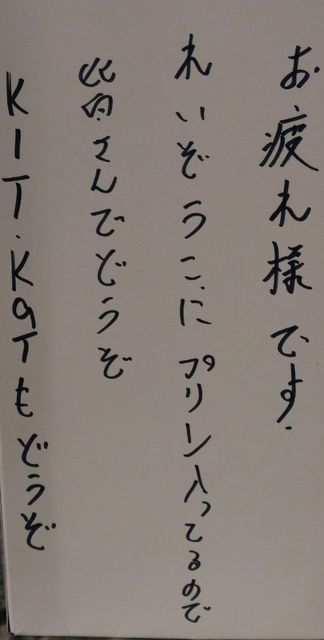 お疲れ様です.
れいぞうこにプリン入ってるので
皆さんでどうぞ
KIT・KaTもどうぞ